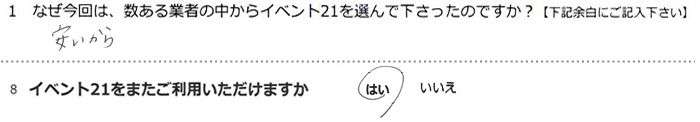 1 なぜ今回は、数ある業者の中からイベント21を選んで下さったのですか？【下記余白にご記入下さい】
安いから
8 イベント21をまたご利用いただけますか はい いいえ